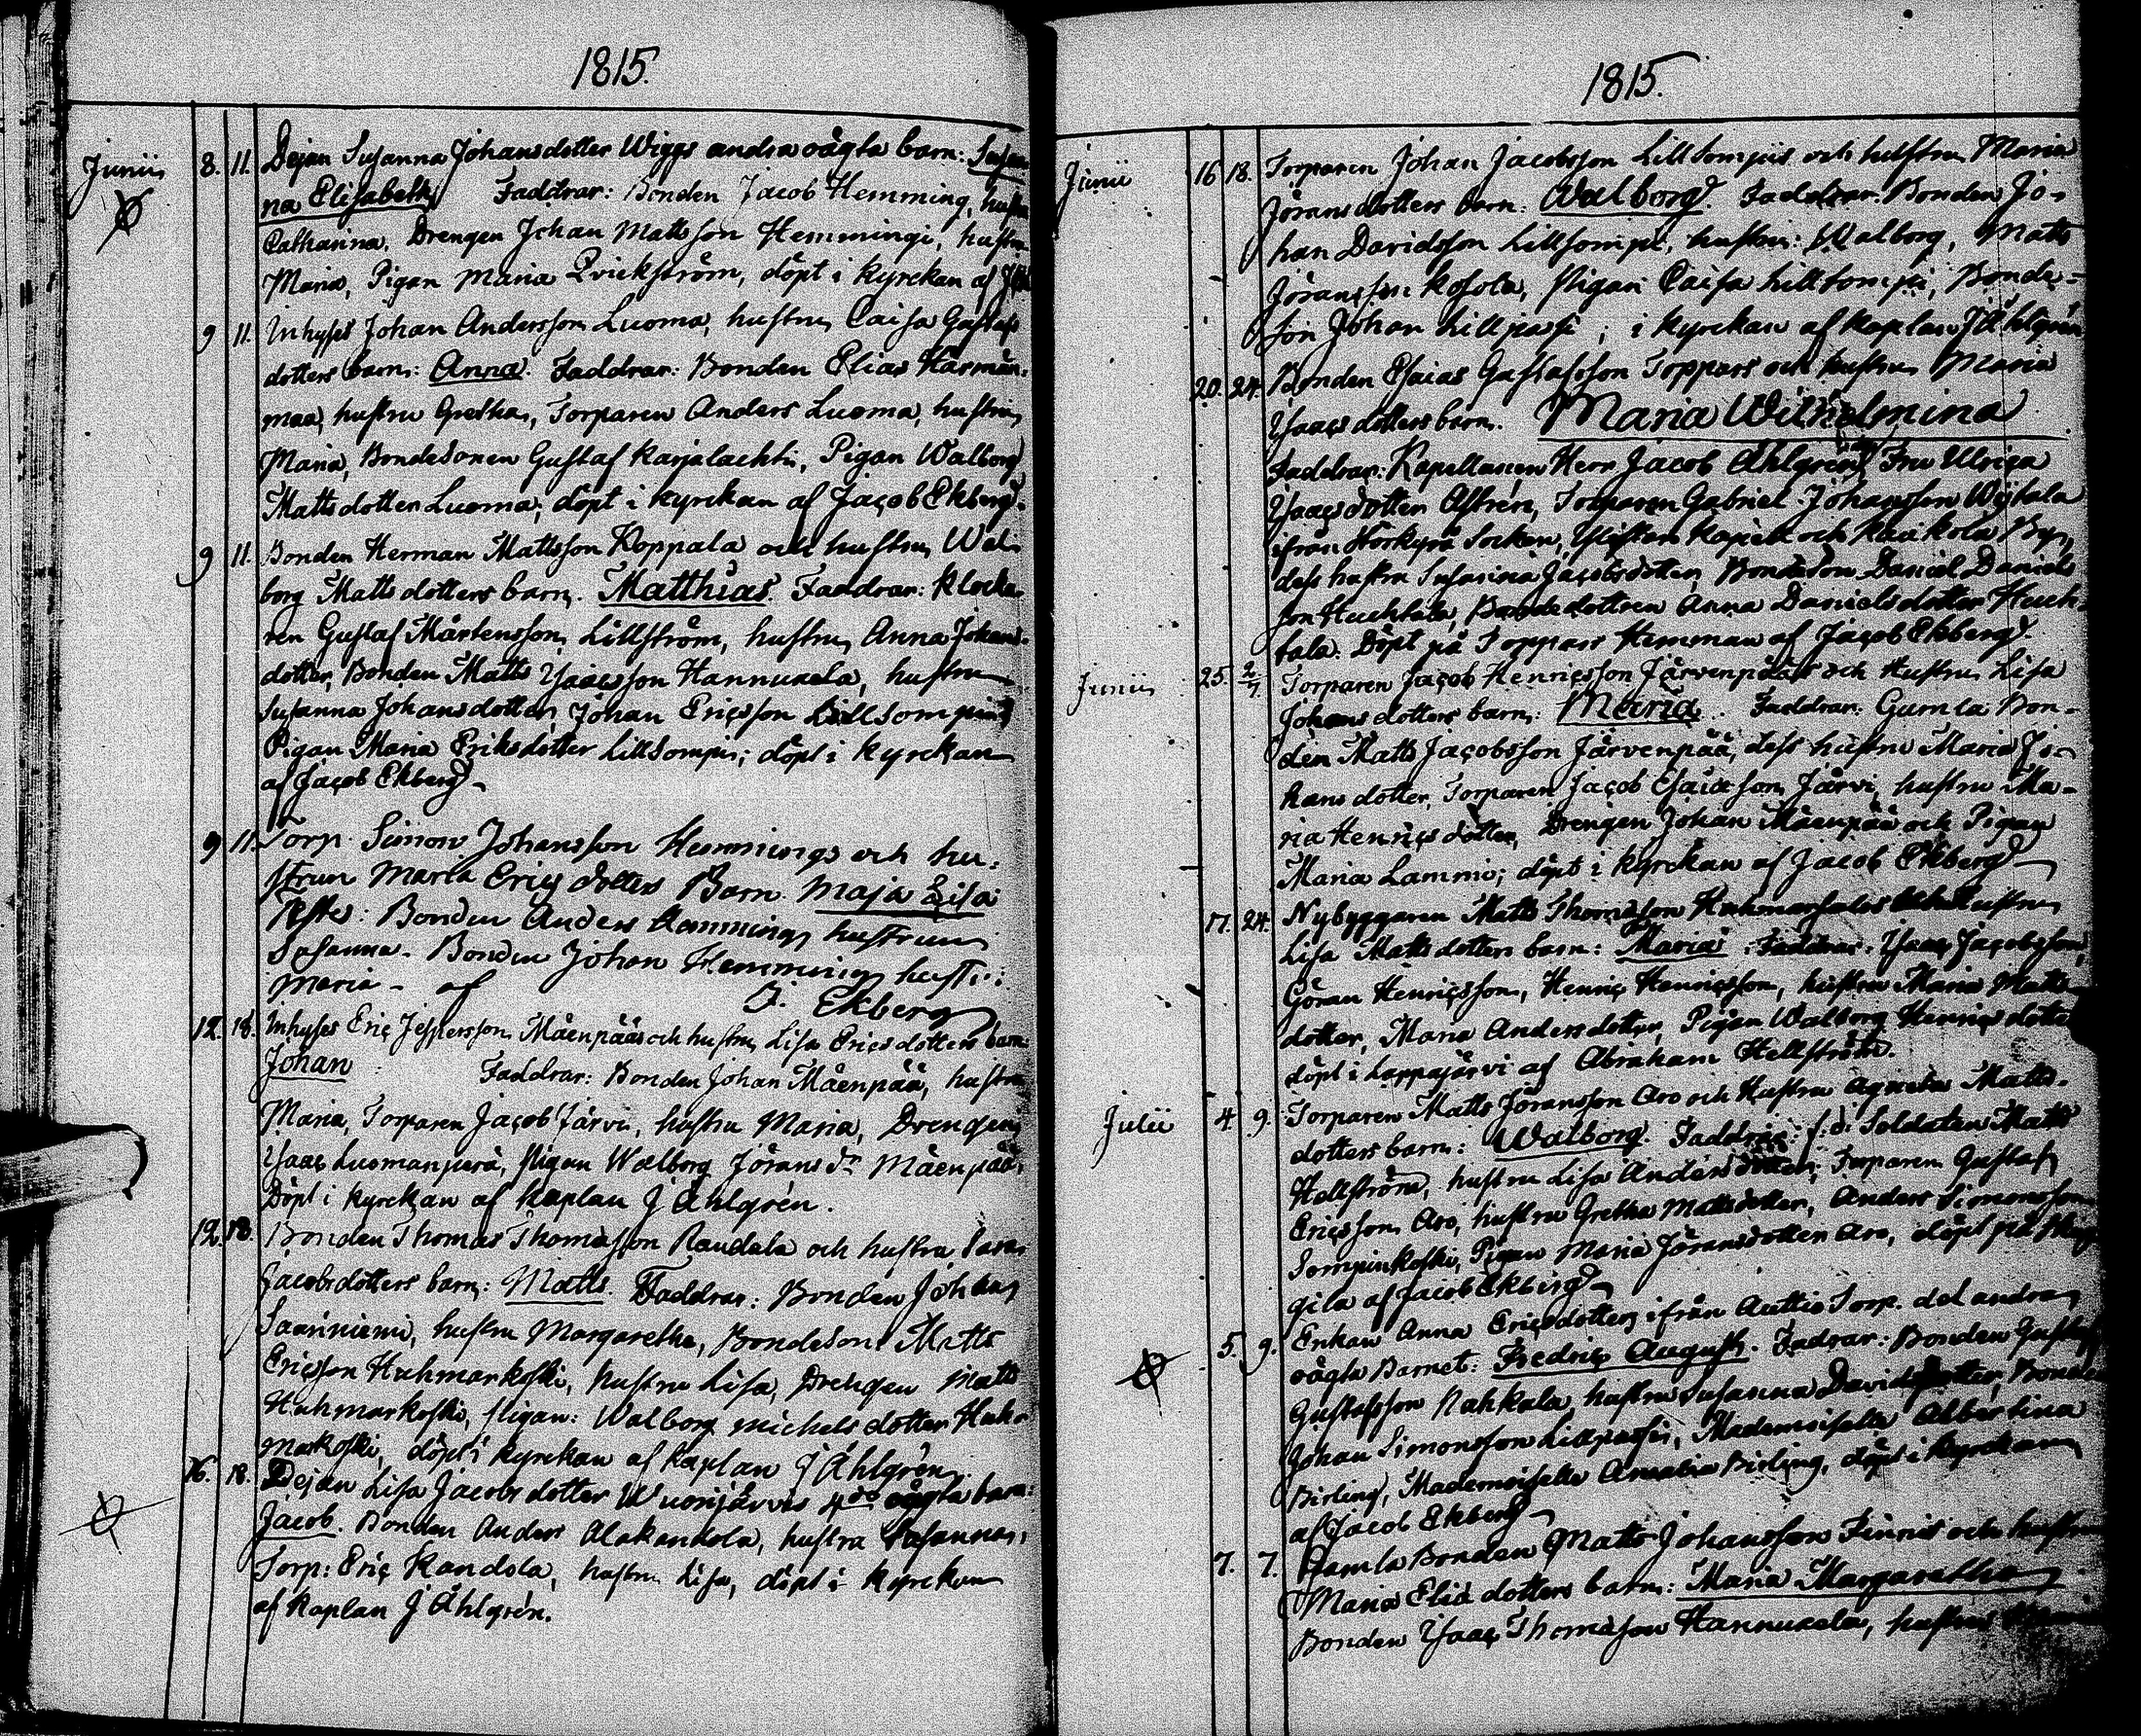 1815.
Junii 8. 11. Dejan Susanna Johansdotter Wiggs andra oägta barn: Susan
na Elisabeth Faddrar: Bonden Jacob Hemming, hustru
Catharina, Drengen Johan Mattsson Hemmingi, hustru
Maria, Pigan Maria Qvickström, döpt i kyrckan af
9 11. Inhyses Johan Andersson Luoma, hustru Caisa Gustafs
dotters barn: Anna. Faddrar: Bonden Elias Härmän-
maa, hustru Gretha, Torparen Anders Luoma, hustru
Maria, Bondesonen Gustaf Karjalachti, Pigan Walborg
Mattsdotter Luoma; döpt i kyrckan af Jacob Ekberg.
9 11. Bonden Herman Mattsson Koppala och hustru Wal-
borg Mattsdotters barn. Matthias. Faddrar: Klocka-
ren Gustaf Mårtensson Lillström, hustru Anna Johans-
dotter, Bonden Matts Isacsson Hannuxela, hustru
Susanna Johansdotter, Johan Ericsson Lillsompi
Pigan Maria Eriksdotter Lillsompi; döpt i kyrckan
af Jacob Ekberg
9 11. Torp. Simon Johansson Hemmings och hu-
strun Maria Erics dotters Barn Maja Lisa
Testes: Bonden Anders Hemming hustrun
Susanna. Bonden Johan Hemming hustr:
Maria - af J. Ekberg
12. 18. Inhyses Eric Jespersson Mäenpääs och hustru Lisa Ericsdotters barn:
Johan Faddrar: Bonden Johan Mäenpää, hustru
Maria, Torparen Jacob Järvi, hustru Maria, Drengen
Isaac Luomanperä, Pigan Walborg Jörans dr Mäenpää,
Döpt i kyrckan af Kaplan J Åhlgrén.
12. 18. Bonden Thomas Thomasson Raudala och hustru
Jacobsdotters barn: Matts. Faddrar: Bonden Johan
Saariniemi, hustru Margaretha, Bondeson Matts
Ericsson Huhmarkoski, hustru Lisa, Drengen Matts
Huhmarkoski, Pigan: Walborg Michelsdotter Huh-
markoski, döpt i kyrckan af Kaplan J Åhlgrén.
16. 18. Dejan Lisa Jacobsdotter Wuorijärvis 4de oägta barn:
Jacob. Bonden Anders Alakandola, hustru Susanna,
Torp: Eric Kandola, hustru Lisa, döpt i kyrckan
af Kaplan J Åhlgrén.
1815.
Junii 16 18. Torparen Johan Jacobsson Lillsompis och hustru Maria
Jöransdotters barn: Walborg. Faddrar: Bonden Jo-
han Davidsson Lillsompi, hustru: Walborg, Matts
Jöransson Kosola, Pigan Caisa Lillsompi, Bonde-
son Johan Lillpasi; i kyrckan af Kaplan J Åhlgrén
20. 24. Bonden Esaias Gustafsson Toppars och hustru Maria
Isaacsdotters barn. Maria Wilhelmina
Faddrar: Kapellanen Herr Jacob Åhlgrén, Fru Ulrica
Isaacsdotter Astrén, Torparen Gabriel Johansson
ifrån Storkyro Socken, Ylistaro Kapell och By,
dess hustru Susanna Jacobsdotter, Bondeson Daniel Daniels
son Huchtala, Bondedottren Anna Danielsdotter Huch-
tala. Döpt på Toppars Hemman af Jacob Ekberg.
Junii 25. 2/7 Torparen Jacob Henricsson Järvenpääs och Hustru Lisa
Johansdotters barn: Maria. Faddrar: Gamla Bon-
den Matts Jacobsson Järvenpää, dess hustru Maria Jo-
hansdotter, Torparen Jacob Esaiasson Järvi, hustru Ma-
ria Henricsdotter, Drengen Johan Mäenpää och Pigan
Maria Lammi; döpt i kyrckan af Jacob Ekberg
17. 24. Nybyggaren Matts Thomasson och Hustru
Lisa Mattsdotters barn: Maria. Faddrar: Isaac Jacobsson,
Göran Henricsson, Henric Henricsson, hustru Maria Matts
dotter, Maria Andersdotter, Pigan Walborg Henricsdotter
döpt i Lappajärvi af Abraham Hellström.
Julii 4. 9. Torparen Matts Jöransson Aro och Hustru Agneta Matts-
dotters barn: Walborg. Faddrar: f.d. Soldaten Matts
Hellström, hustru Lisa Andersdotter, Torparen Gustaf
Ericsson Aro, hustru Gretha Mattsdotter, Anders Simonsson
Sompinkoski, Pigan Maria Jöransdotter Aro, döpt på
gila af Jacob Ekberg
5. 9. Enkan Anna Ericsdotters ifrån Auttio Torp. det andra
oägta Barnet: Fredric August. Fadrar: Bonden Gustaf
Gustafsson Nahkala, hustru Susanna Davidsdotter, Bonden
Johan Simonsson Lillpassi, Mademoiselle Albertina
Birling, Mademoiselle Amalia Birling, döpt i kyrckan
af Jacob Ekberg
7. 7. Gamla Bonden Matts Johansson Finnis och hustru
Maria Eliæ dotters barn: Maria Margaretha
Bonden Isaac Thomasson Hannuxela, hustru